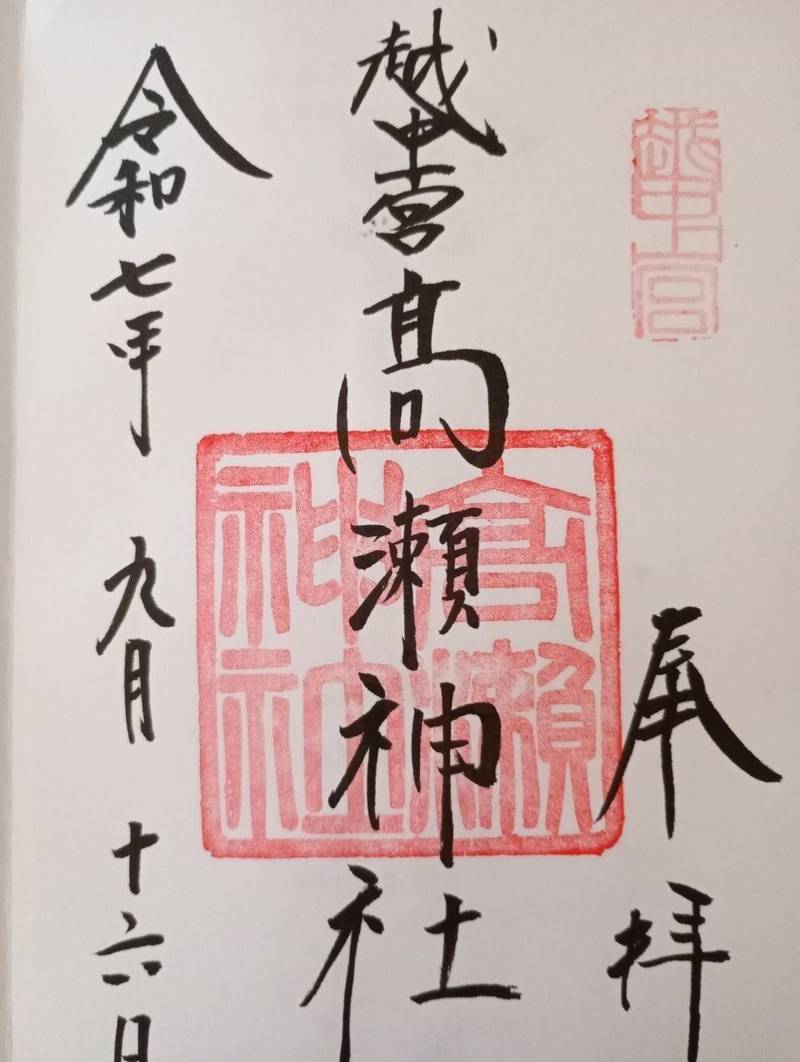 越中一宮
奉拝
越中一宮 髙瀬神社
高瀬
神社
令和七年 九月 十六日